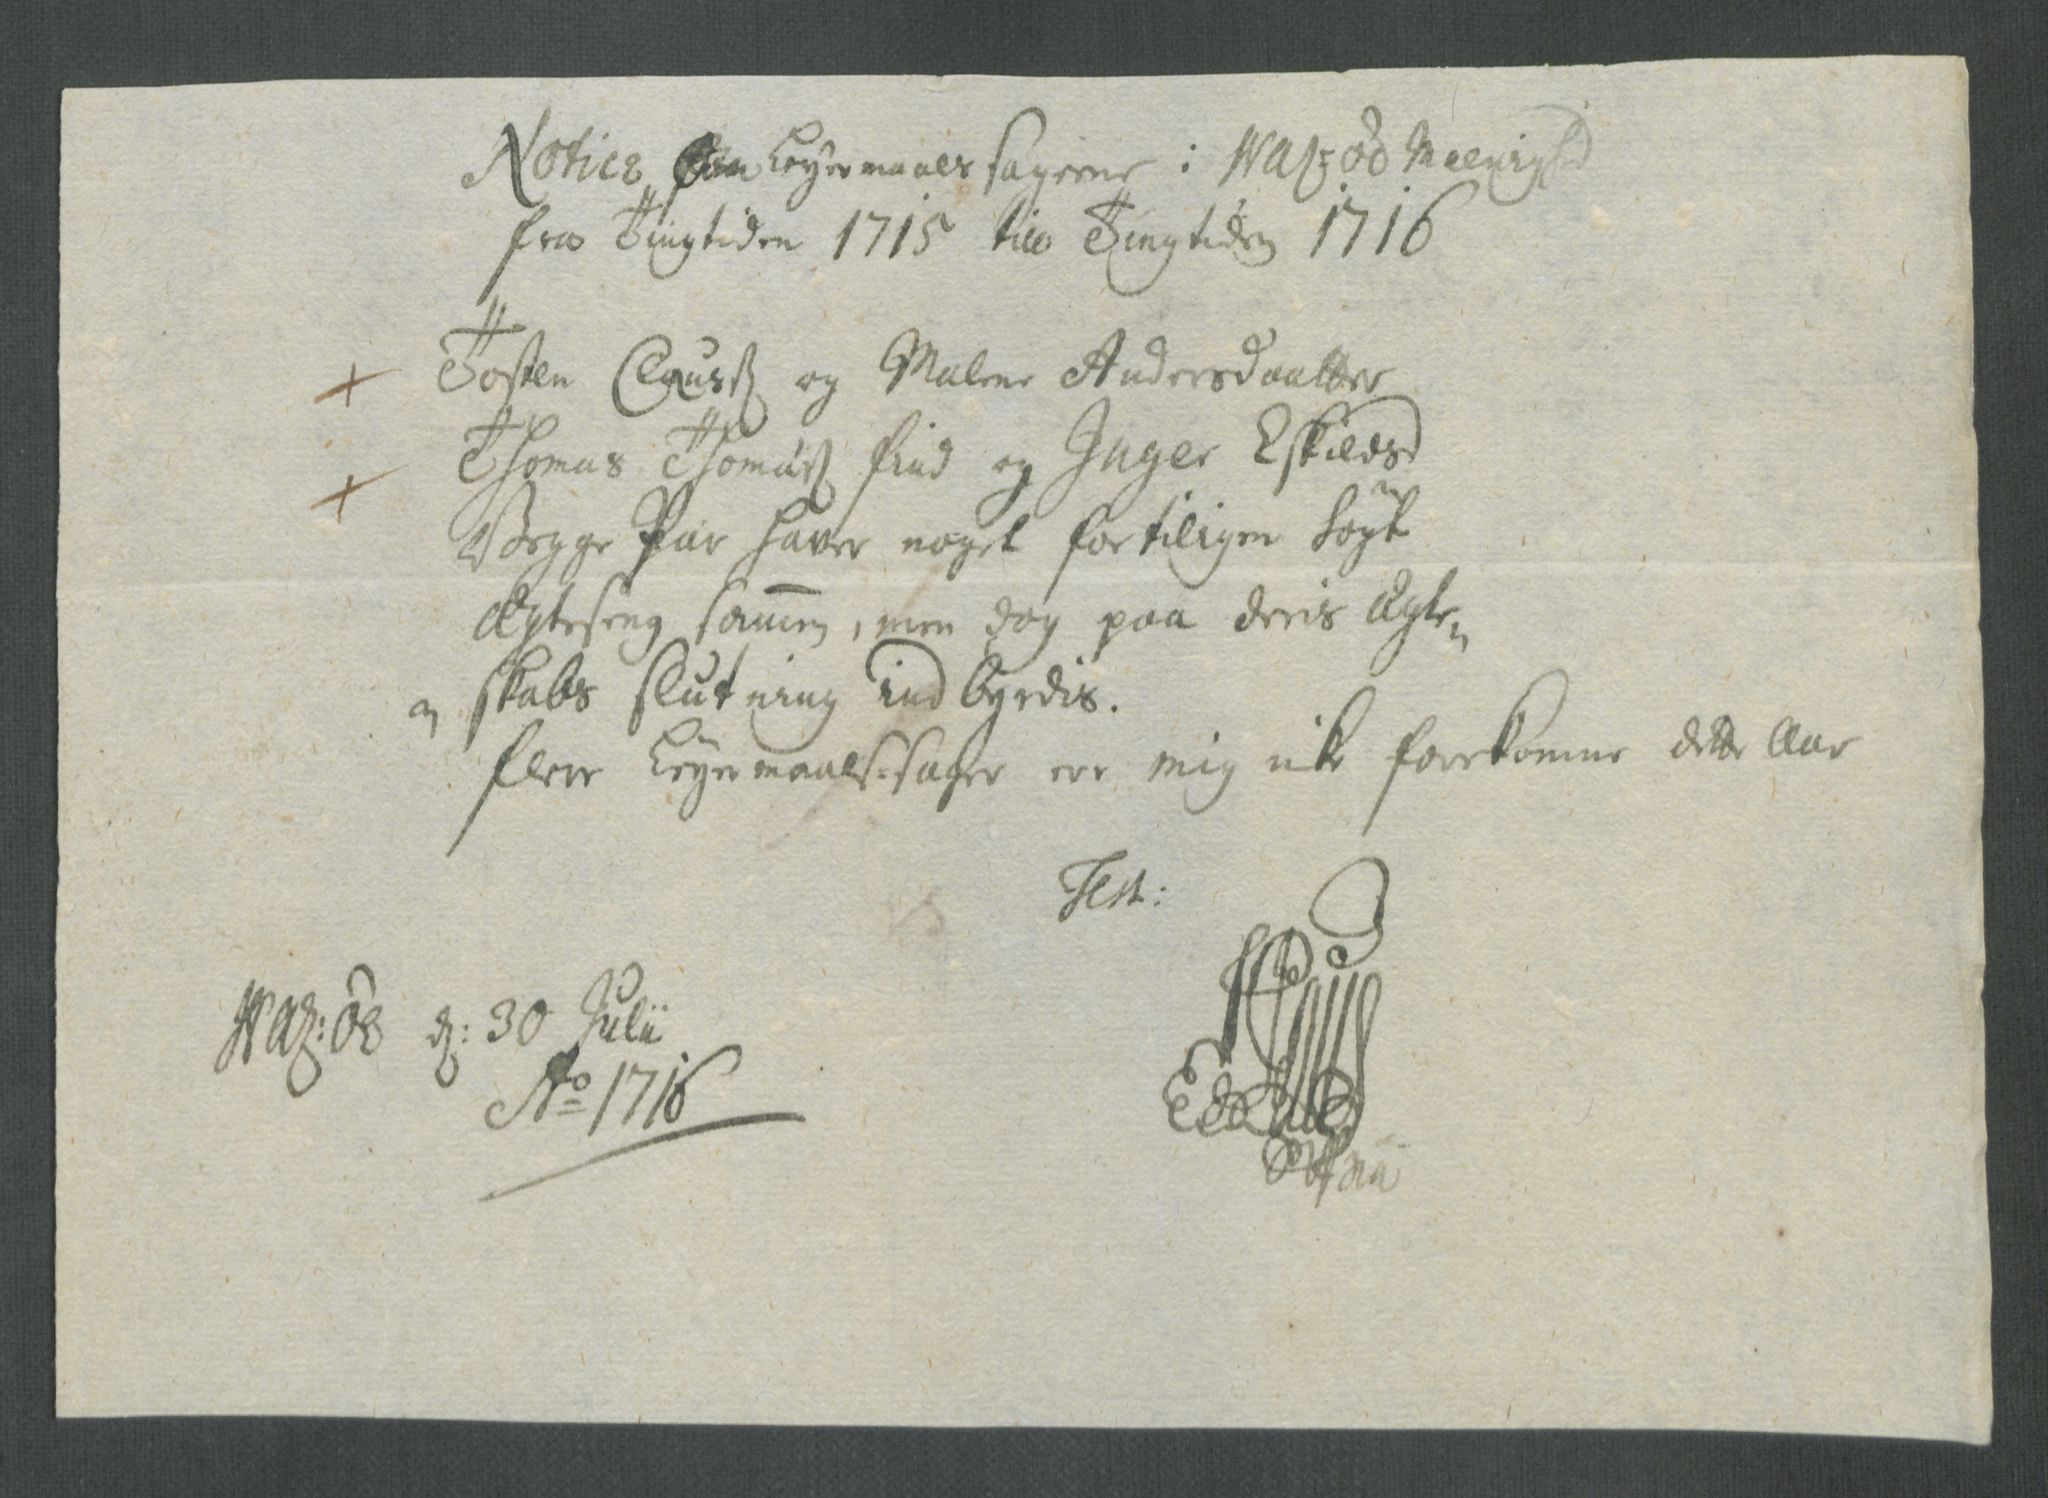 Notice om Leyermaals sagerne i Waz:öe Meenighd
fra Tingtiden 1715 till Tingtiden 1716
Tosten Clausß og Malene Andersdaatter
Thomas Thomasß find og Inger Eskildsd
Begge Par haver noget fortiligen søgt
Ægteseng sammen, men dog paa deris Ægte=
skabs slutning ind byrdis.
flere Leyermaals-sager ere mig ike forekomne dette Aar
Test:
Waz:öe d: 30 Julii
Ao 1716